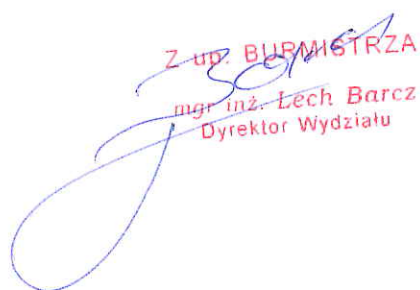 Z up. BURMISTRZA
mgr inż. Lech Barcz
Dyrektor Wydziału